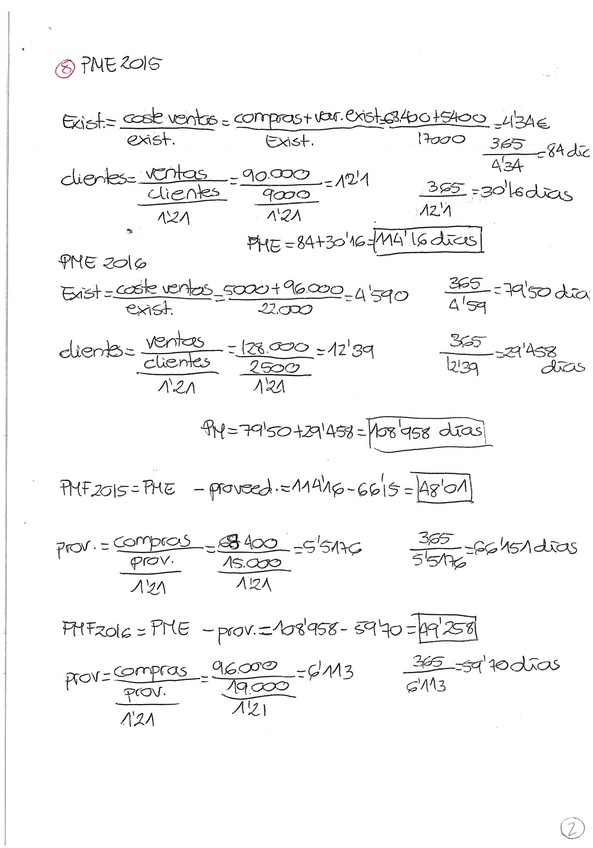 ⑧ PME 2015
Exist.= coste ventas / exist. = compras + var. exist / Exist. = 68400+5400 / 17000 = 4'34€
365 / 4'34 = 84 día
clientes = ventas / (clientes / 1'21) = 90.000 / (9000 / 1'21) = 12'1
365 / 12'1 = 30'16 días
PME = 84+30'16 = 114'16 días
PME 2016
Exist = coste ventas / exist. = 5000 + 96.000 / 22.000 = 4'590
365 / 4'59 = 79'50 día
clientes = ventas / (clientes / 1'21) = 128.000 / (2500 / 1'21) = 12'39
365 / 12'39 = 29'458 días
PM = 79'50 + 29'458 = 108'958 días
PMF 2015 = PME - proveed. = 114'16 - 66'15 = 48'01
prov. = compras / (prov. / 1'21) = 68400 / (15.000 / 1'21) = 5'5176
365 / 5'5176 = 66'151 días
PMF 2016 = PME - prov. = 108'958 - 59'70 = 49'258
prov = compras / (prov. / 1'21) = 96.000 / (19.000 / 1'21) = 6'113
365 / 6'113 = 59'70 días
2